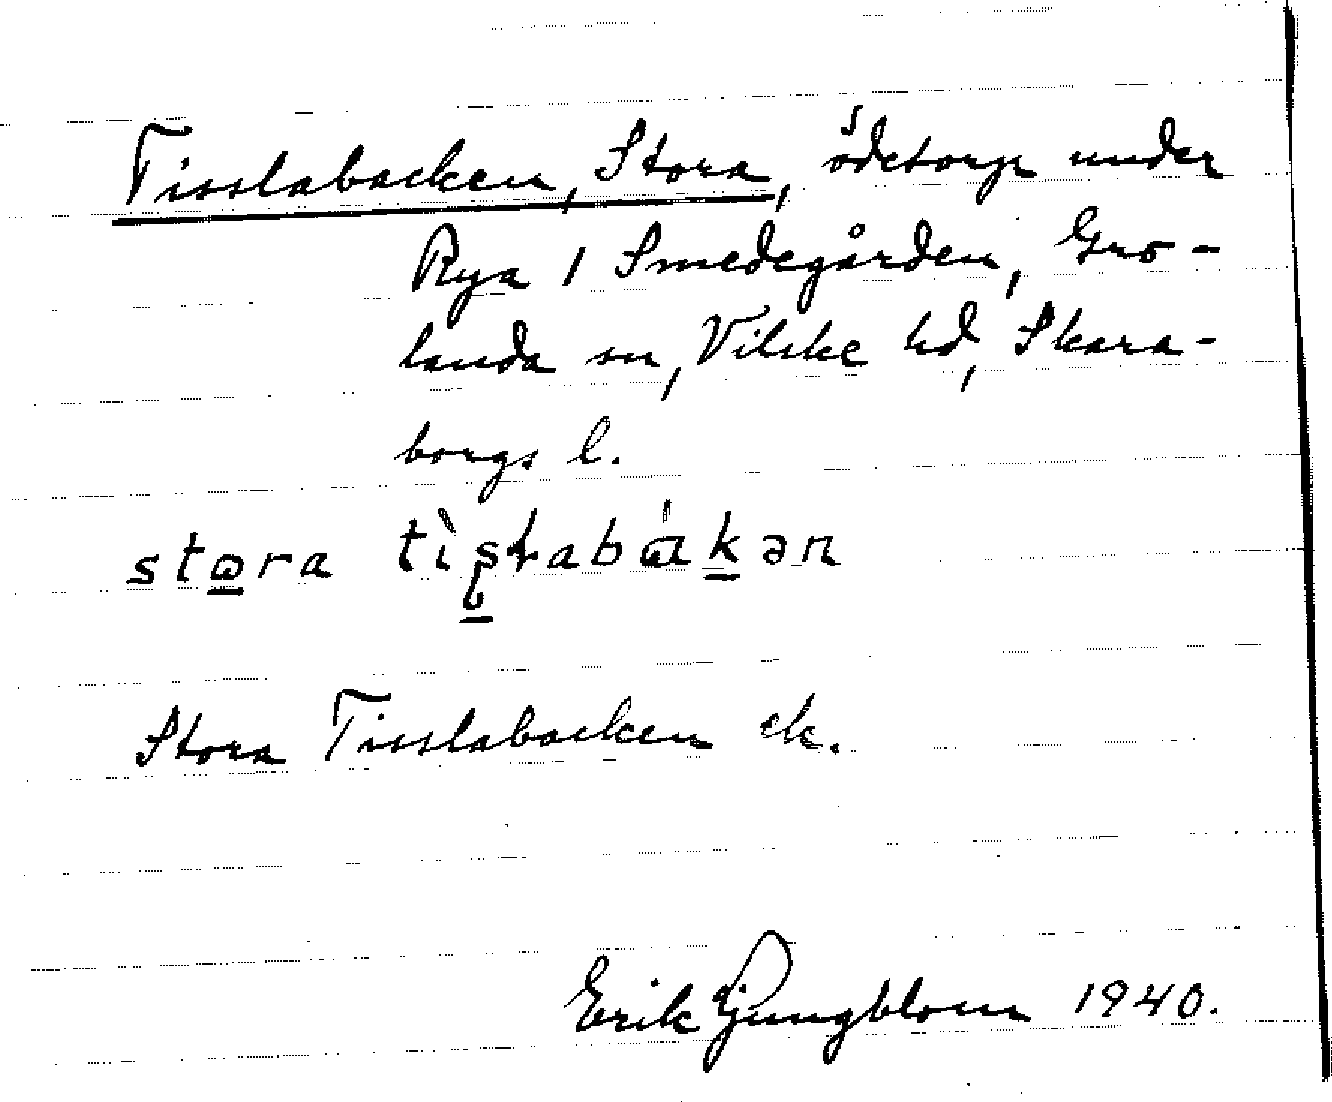 Tisslabacken, Stora, ödetorp under
Rya 1 Smedegården, Gro-
landa sn, Vilske hd, Skara-
borgs l.
stora tìsɫabákən
Stora Tisslabacken ek.
Erik Ljungblom 1940.